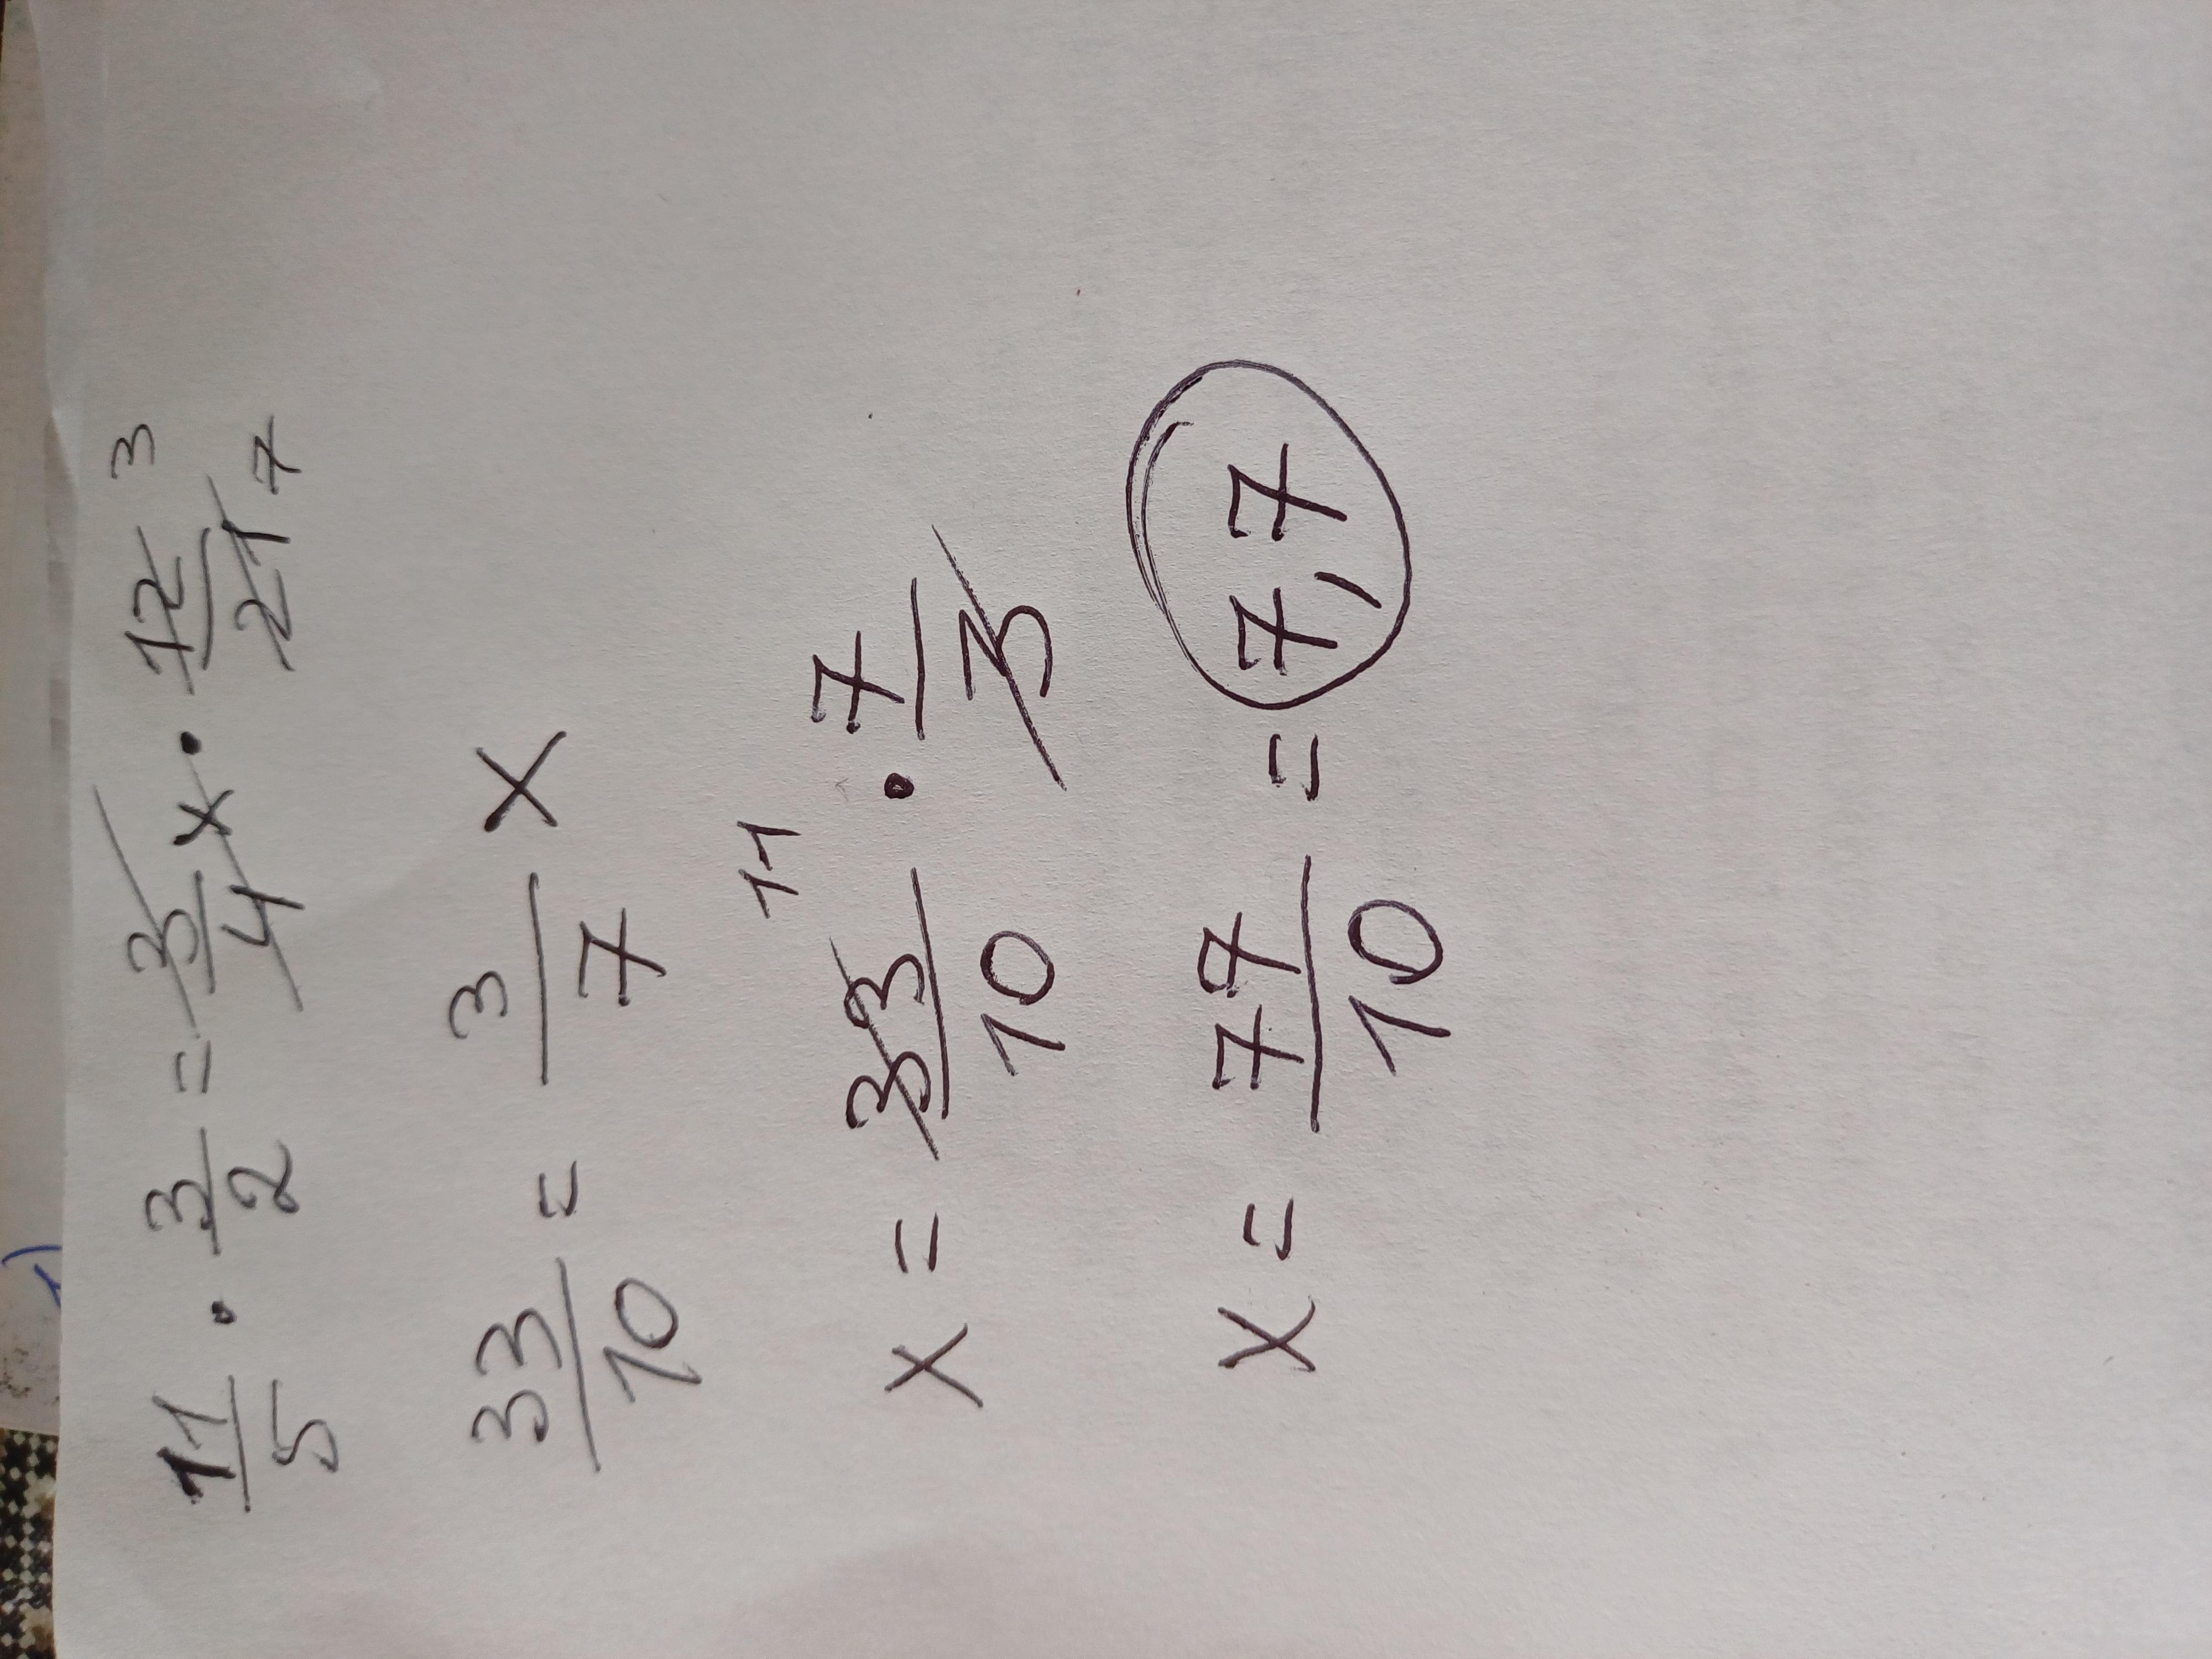 11/5 · 3/2 = 3/4 x · 12/21 3 7
33/10 = 3/7 x
x = 33/10 11 · 7/3
x = 77/10 = 7,7